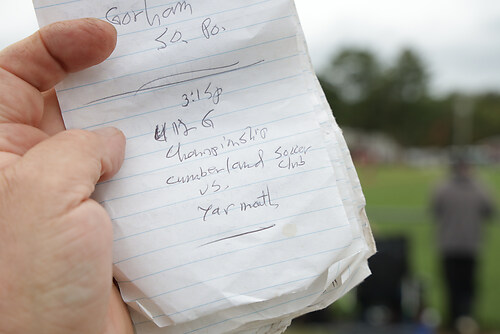 Gorham
So. Po.
3:15p
U12 G
Championship
Cumberland Soccer
Club
vs.
Yarmouth